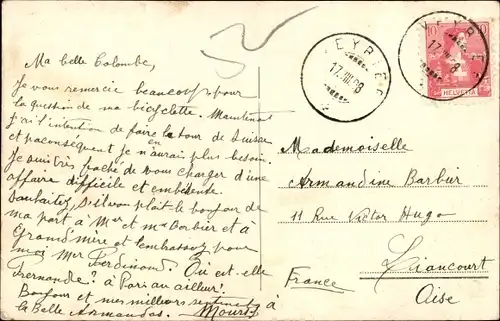 Ma belle Colombe,
Je vous remercie beaucoup pour
la question de ma bicyclette. Maintenant
j'ai l'intention de faire le tour de Suisse
et par conséquent je n'en aurai plus besoin.
Je suis très faché de vous charger d'une
affaire difficile et embêtante.
Souhaitez s'il vous plait le bonjour de
ma part à Mr et Mme Barbier et à
Grand'mère et embrassez pour
moi Mr Ferdinand. Où est-elle
Fernande? à Paris ou ailleurs?
Bonjour et mes meilleurs sentiments à
la Belle Armandas.
VEYRIER
17.VIII.08
VEYRIER
17.VIII.08
10
HELVETIA
Mademoiselle
Armandine Barbier
11 Rue Victor Hugo
Liancourt
France Oise